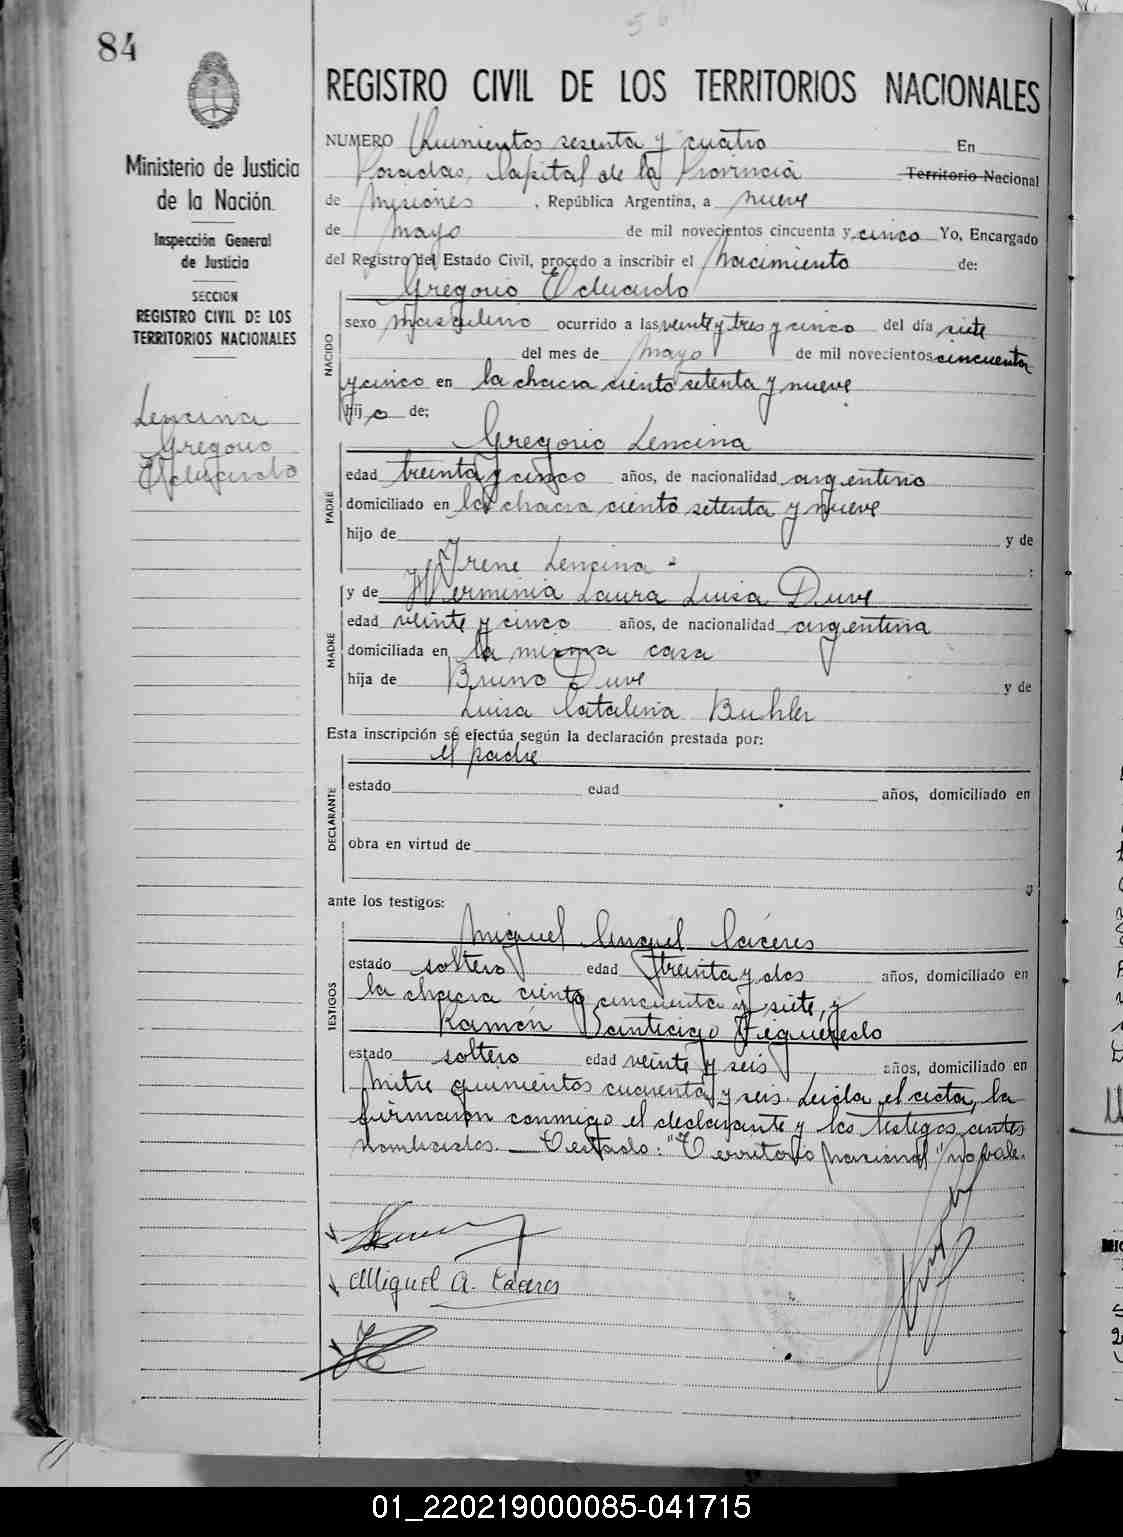 84
56
Ministerio de Justicia
de la Nación
Inspección General
de Justicia
SECCION
REGISTRO CIVIL DE LOS
TERRITORIOS NACIONALES
Lencina
Gregorio
Eduardo
REGISTRO CIVIL DE LOS TERRITORIOS NACIONALES
NUMERO Quinientos sesenta y cuatro En
Posadas, Capital de la Provincia Territorio Nacional
de Misiones, República Argentina, a nueve
de mayo de mil novecientos cincuenta y cinco Yo, Encargado
del Registro del Estado Civil, procedo a inscribir el Nacimiento de:
Gregorio Eduardo
NACIDO
sexo masculino ocurrido a las veinte y tres y cinco del día siete
del mes de mayo de mil novecientos cincuenta
y cinco en la chacra ciento setenta y nueve
hijo de:
Gregorio Lencina
PADRE
edad treinta y cinco años, de nacionalidad argentino
domiciliado en la chacra ciento setenta y nueve
hijo de y de
Irene Lencina -
y de Herminia Laura Luisa Duve
MADRE
edad veinte y cinco años, de nacionalidad argentina
domiciliada en la misma casa
hija de Bruno Duve y de
Luisa Catalina Buhler
Esta inscripción se efectúa según la declaración prestada por:
el padre
DECLARANTE
estado edad años, domiciliado en
obra en virtud de
ante los testigos:
Miguel Angel Cáceres
TESTIGOS
estado soltero edad treinta y dos años, domiciliado en
la chacra ciento cincuenta y siete, y
Ramón Santiago Figueredo
estado soltero edad veinte y seis años, domiciliado en
Mitre quinientos cuarenta y seis. Leída el acta, la
firmaron conmigo el declarante y los testigos antes
nombrados. — Testado: "Territorio Nacional" no vale.
Miguel A. Cáceres
01_220219000085-041715